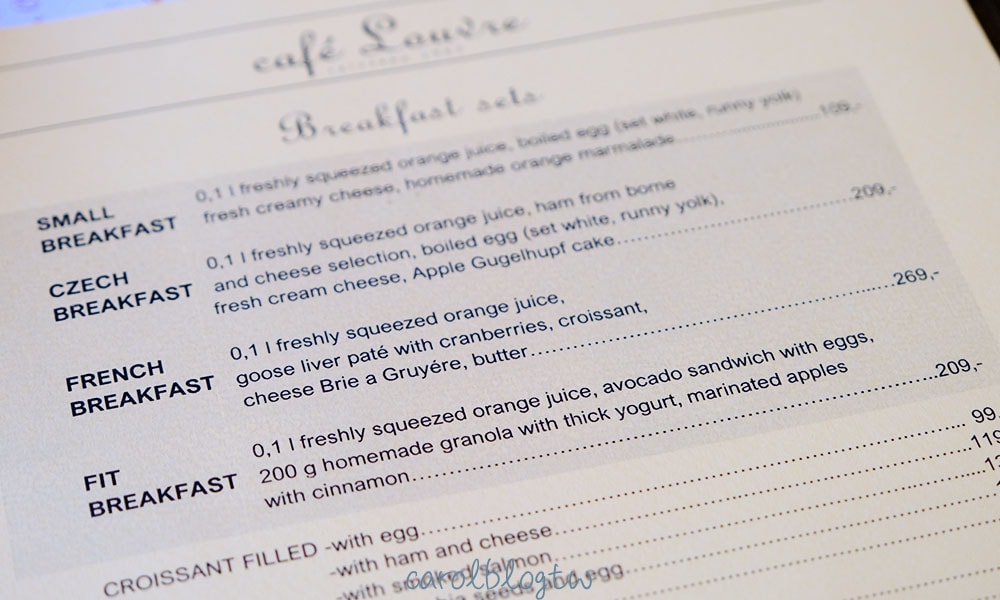 café Louvre
Breakfast sets
SMALL BREAKFAST
0,1 l freshly squeezed orange juice, boiled egg (set white, runny yolk)
fresh creamy cheese, homemade orange marmalade..........
CZECH BREAKFAST
0,1 l freshly squeezed orange juice, ham from bome
and cheese selection, boiled egg (set white, runny yolk),
fresh cream cheese, Apple Gugelhupf cake..........209,-
FRENCH BREAKFAST
0,1 l freshly squeezed orange juice,
goose liver paté with cranberries, croissant,
cheese Brie a Gruyére, butter..........269,-
FIT BREAKFAST
0,1 l freshly squeezed orange juice, avocado sandwich with eggs,
200 g homemade granola with thick yogurt, marinated apples
with cinnamon..........209,-
CROISSANT FILLED -with egg.......... 99
-with ham and cheese..........119
-with
egg
carolblogtw